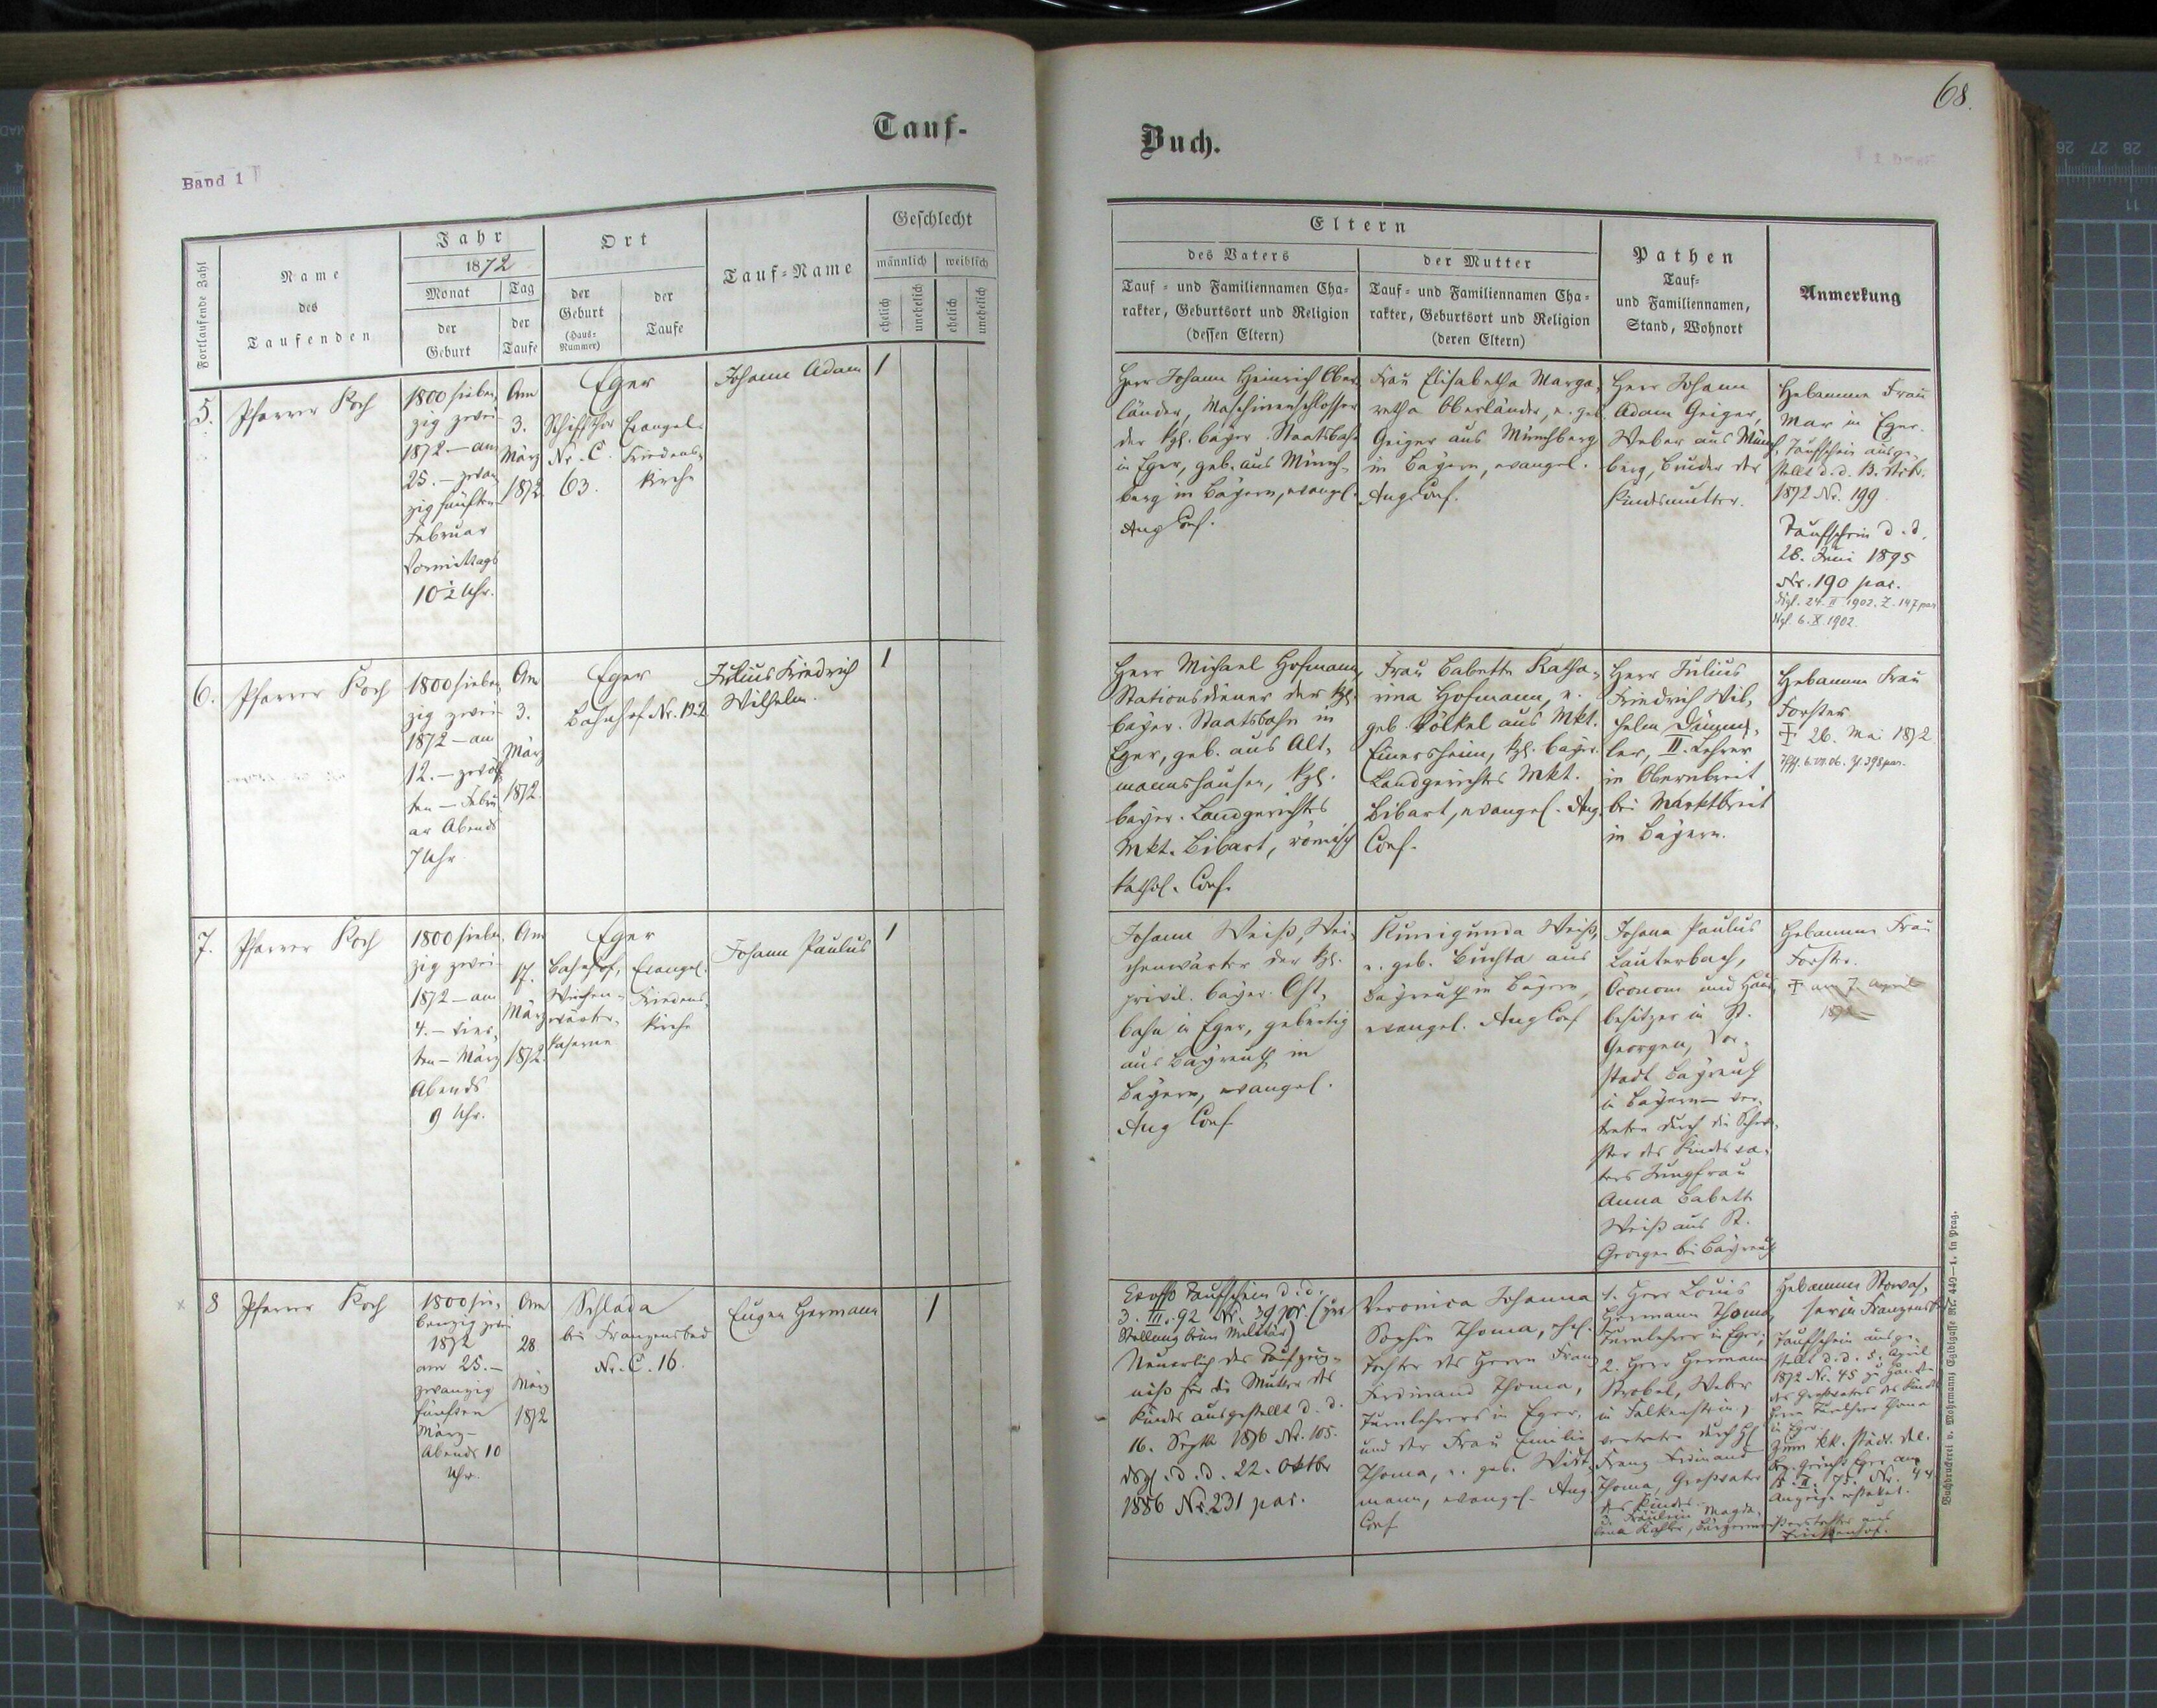 68.
Tauf-
Buch.
Band 1
Fortlaufende Zahl
Name
des
Taufenden
Jahr
1872
Monat
Tag
der
Geburt
der
Taufe
Ort
der
Geburt
(Haus-
Nummer)
der
Taufe
Tauf-Name
Geschlecht
männlich
weiblich
ehelich
unehelich
ehelich
unehelich
Eltern
des Vaters
Tauf- und Familiennamen Cha-
rakter, Geburtsort und Religion
(dessen Eltern)
der Mutter
Tauf- und Familiennamen Cha-
rakter, Geburtsort und Religion
(deren Eltern)
Pathen
Tauf-
und Familiennamen,
Stand, Wohnort
Anmerkung
5.
Pfarrer Koch
1800 sieben
zig zwei
1872 – am
25. – zwan
zig fünften
Februar
Vormittags
10½ Uhr.
Am
3.
März
1872
Eger
Schiffthor
Nr. C.
63.
Evangel.
Friedens-
kirche
Johann Adam
1
Herr Johann Heinrich Ober-
länder, Maschinenschlosser
der kgl. bayer. Staatsbahn
in Eger, geb. aus Münch-
berg in Bayern, evangel.
Aug Conf.
Frau Elisabetha Marga-
retha Oberländer, e. geb.
Geiger aus Münchberg
in Bayern, evangel.
Aug Conf.
Herr Johann
Adam Geiger,
Weber aus Münch-
berg, Bruder der
Kindsmutter.
Hebamme Frau
Mar in Eger.
Taufschein ausge-
stellt d. d. 13.
1872 Nr. 199
Taufschein d. d.
28. Juni 1895
Nr. 190 par.
24. II 1902. Z. 147 par
6. X. 1902.
6.
Pfarrer Koch
1800 sieben
zig zwei
1872 – am
12. – zwölf
ten – Febru
ar Abends
7 Uhr
Am
3.
März
1872.
Eger
Bahnhof Nr. 192
Julius Friedrich
Wilhelm.
1
Herr Michael Hofmann,
Stationsdiener der kgl.
bayer. Staatsbahn in
Eger, geb. aus Alt-
mannshausen, kgl.
bayer. Landgerichtes
Mkt. Bibart, römisch
kathol. Conf.
Frau Babetta Katha-
rina Hofmann, e.
geb. Völkel aus Mkt.
Einersheim, kgl. bayer.
Landgerichtes Mkt.
Bibart, evangel. Aug.
Conf.
Herr Julius
Friedrich Wil-
helm
ler, II. Lehrer
in Obernbreit
bei Marktbreit
in Bayern.
Hebamme Frau
Forster
26. Mai 1872
7.
Pfarrer Koch
1800 sieben
zig zwei
1872 – am
4. – vier
ten – März
Abends
9 Uhr.
Am
17.
März
1872.
Eger
Bahnhof,
Weichen-
wärter-
kaserne
Evangel.
Friedens-
kirche
Johann Paulus
1
Johann Weiß, Wei-
chenwärter der kgl.
privil. bayer. Ost-
bahn in Eger, gebürtig
aus Bayreuth in
Bayern, evangel.
Aug Conf
Kunigunda Weiß,
e. geb. Buchta aus
Bayreuth in Bayern,
evangel. Aug Conf
Johann Paulus
Lauterbach,
Öconom und Haus-
besitzer in St.
Georgen, Vor-
stadt Bayreuth
in Bayern – ver-
treten durch die Schwe-
ster des Kindsva-
ters Jungfrau
Anna Babetta
Weiß aus St.
Georgen bei Bayreuth
Hebamme Frau
Forster.
am 7. April
1872
8
Pfarrer Koch
1800 sie-
benzig zwei
1872
am 25. –
zwanzig
fünften
März –
Abends 10
Uhr.
Am
28
März
1872
Schlada
bei Franzensbad
Nr. C. 16.
Eugen Hermann
1
Taufschein d. d.
3. III. 92 Nr. 39 par (zur
Stellung beim Militär)
Neuerlich das Taufzeug-
niß für die Mutter des
Kindes ausgestellt d. d.
16. Sept 1876 Nr. 105.
dsgl. d. d. 22. Oktbr
1886 Nr. 231 par.
Veronica Johanna
Sophie Thoma, ehel.
Tochter des Herrn Franz
Ferdinand Thoma,
Turnlehrers in Eger,
und der Frau Emilie
Thoma, e. geb. Widt-
mann, evangel. Aug
Conf
1. Herr Louis
Hermann Thoma,
Turnlehrer in Eger;
2. Herr Hermann
Strobel, Weber
in Falkenstein,
vertreten durch H
Franz Ferdinand
Thoma, Großvater
des Kindes.
3. Fräulein Magda-
lena Köhler, Bürgermei-
sterstochter aus
Hebamme
in Franzensb.
Taufschein ausge-
stellt d. d. 5. April
1872 Nr. 45 zu Handen
des Großvaters des Kindes
Herrn Turnlehrer Thoma
in Eger
zum kk. städt. del.
Bez. Gericht Eger am
II. 75. Nr. 44
Anzeige erstattet.
Buchdruckerei v. Mohrmann, Egidigasse Nr. 449–1. in Prag.